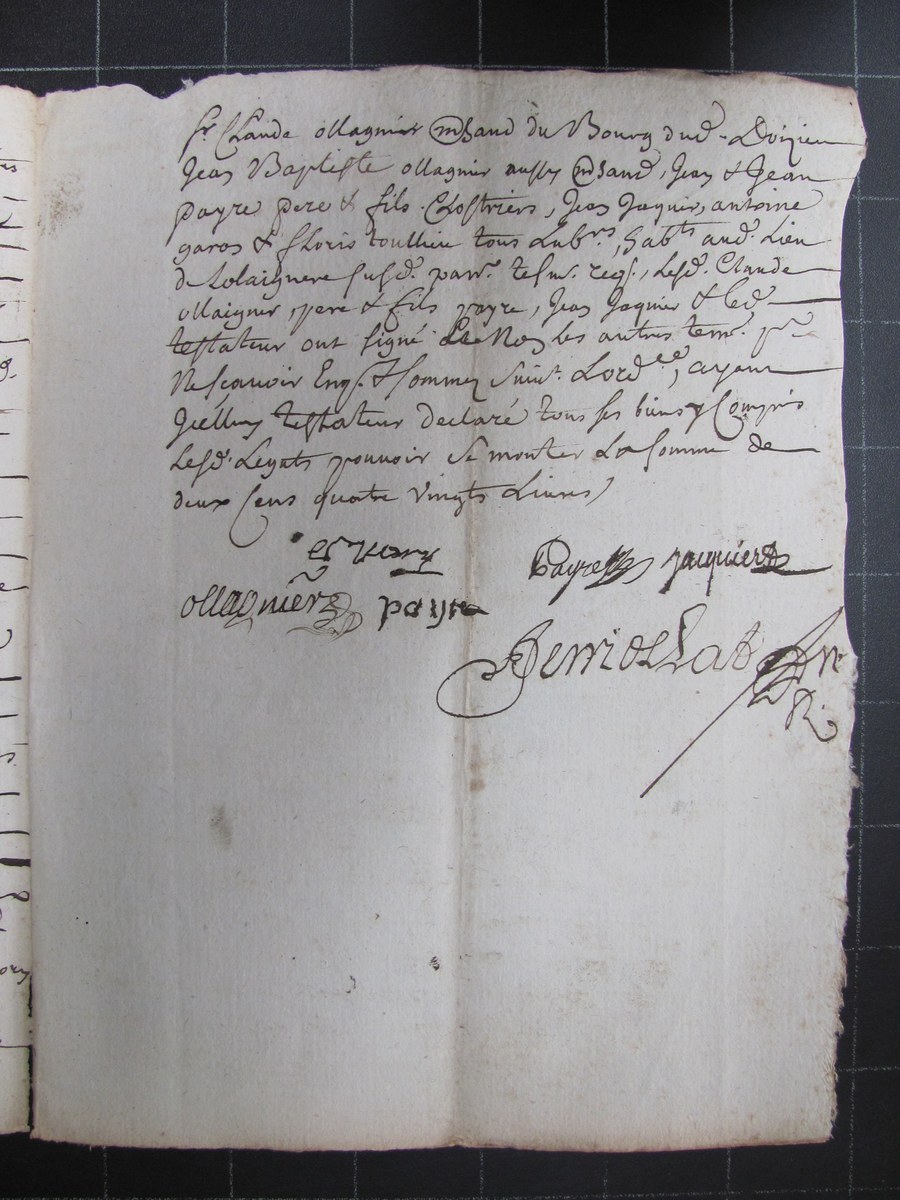 Sr. Claude ollagnier mchand du Bourg dud. Doizieu
Jean Baptiste ollagnier aussy mchand, Jean & Jean
payre pere & fils Chostriers, Jean Jaquier, antoine
garos & floris toullieu tous Labrs, habts aud. Lieu
de Lolaignere susd. parr. tesm. reqs., Lesd. Claude
ollaignier, pere & fils payre, Jean Jaquier & led.
testateur ont signé & Non les autres tesm. pr.
Ne scavoir Enqs. & sommez suivt. Lordce, ayant
Jcelluy testateur declaré tous ses biens y Compris
Lesd. Legats pouvoir se monter La somme de
deux Cens quatre vingts Livres
Payre jaquier
ollagnier payre